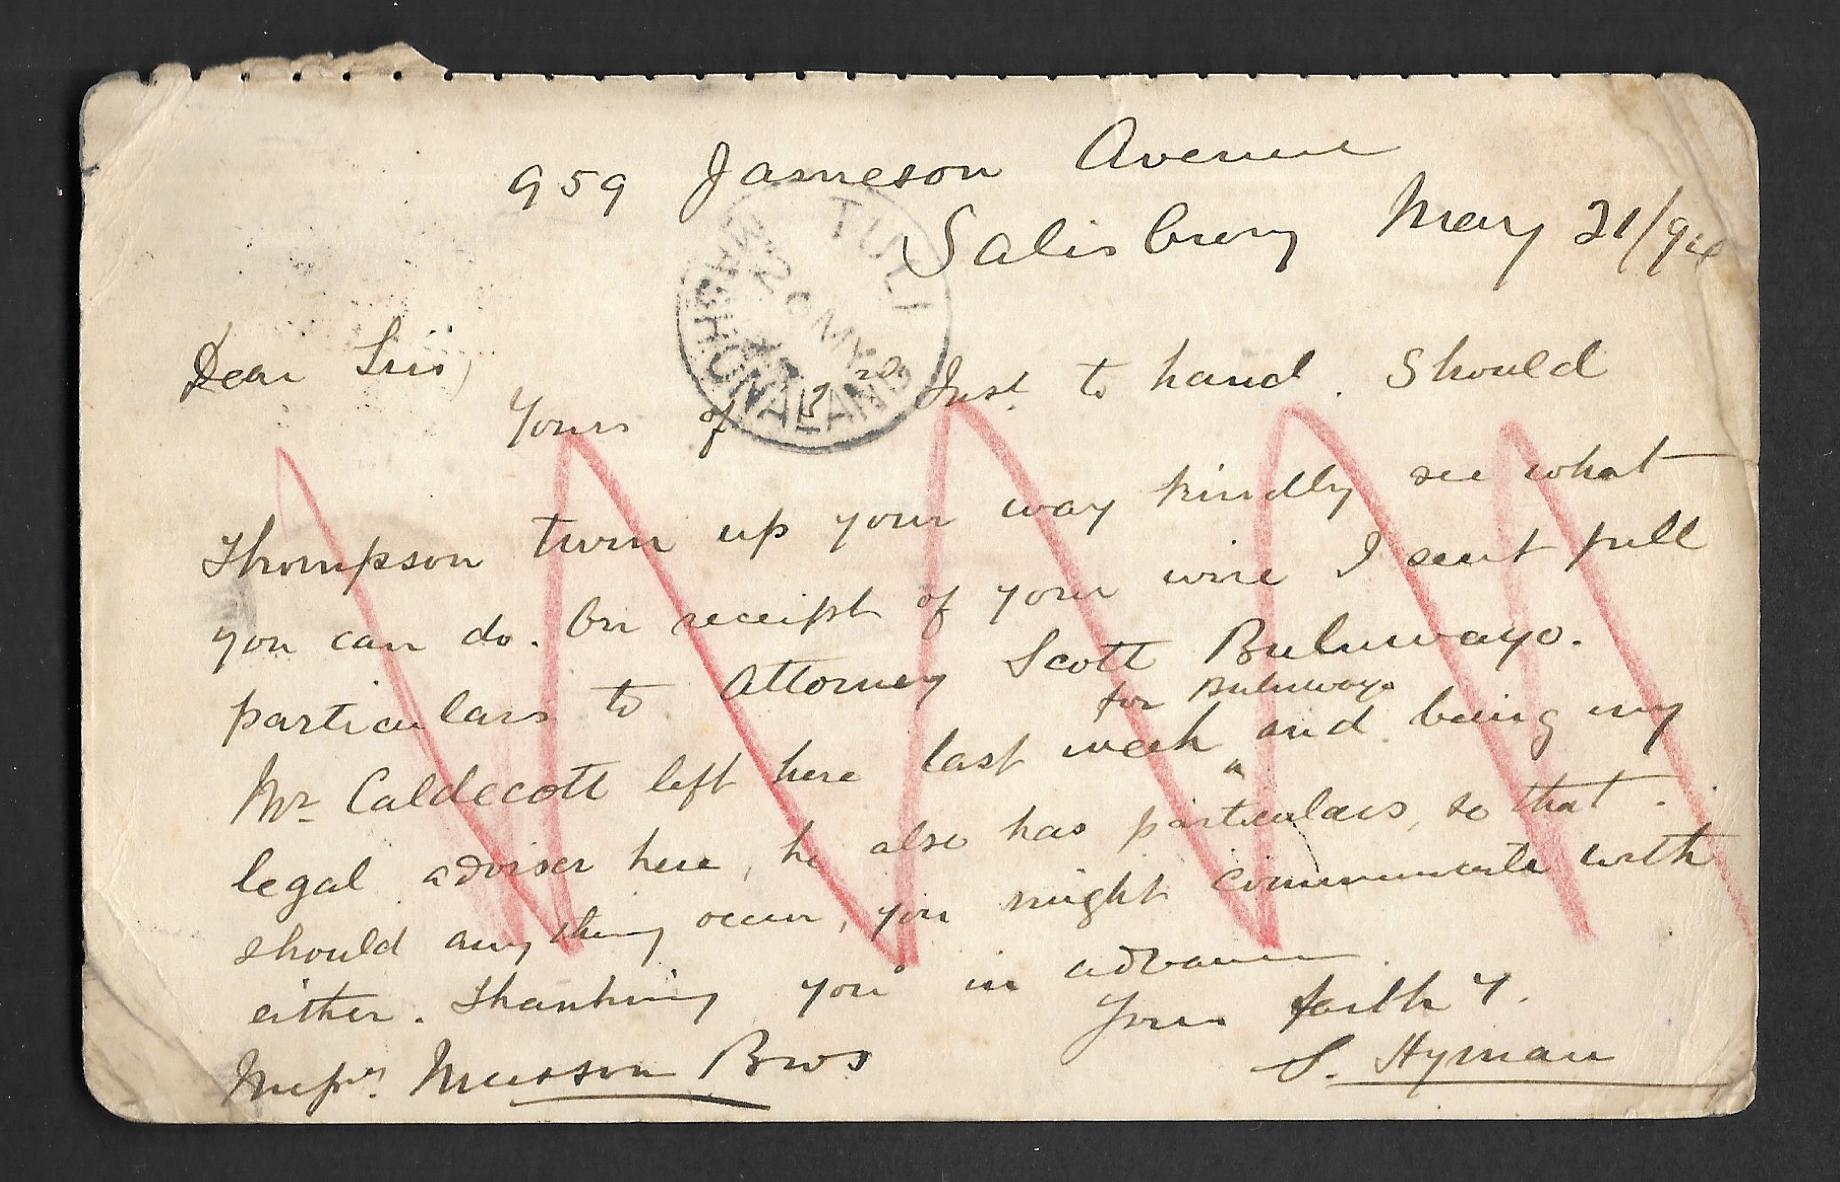 959 Jameson Avenue
Salisbury May 21/94
TULI
26 MY
MASHONALAND
Dear Sirs,
Yours of Inst. to hand. Should
Thompson turn up your way kindly see what
you can do. On receipt of your wire I sent full
particulars to Attorney Scott Buluwayo.
for Buluwayo
Mr. Caldecott left here last week ^ and being my
legal adviser here, he also has particulars, so that
should anything occur, you might communicate with
either. Thanking you in advance.
Yours faithy.
S. Hyman
Messrs. Musson Bros